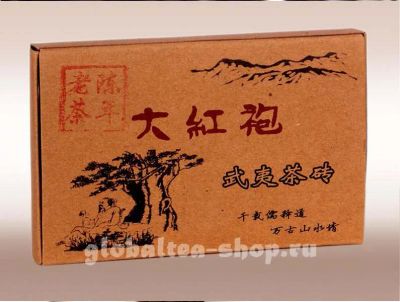 陈年
老茶
大紅袍
武夷茶砖
千载儒释道
万古山水情
globaltea-shop.ru